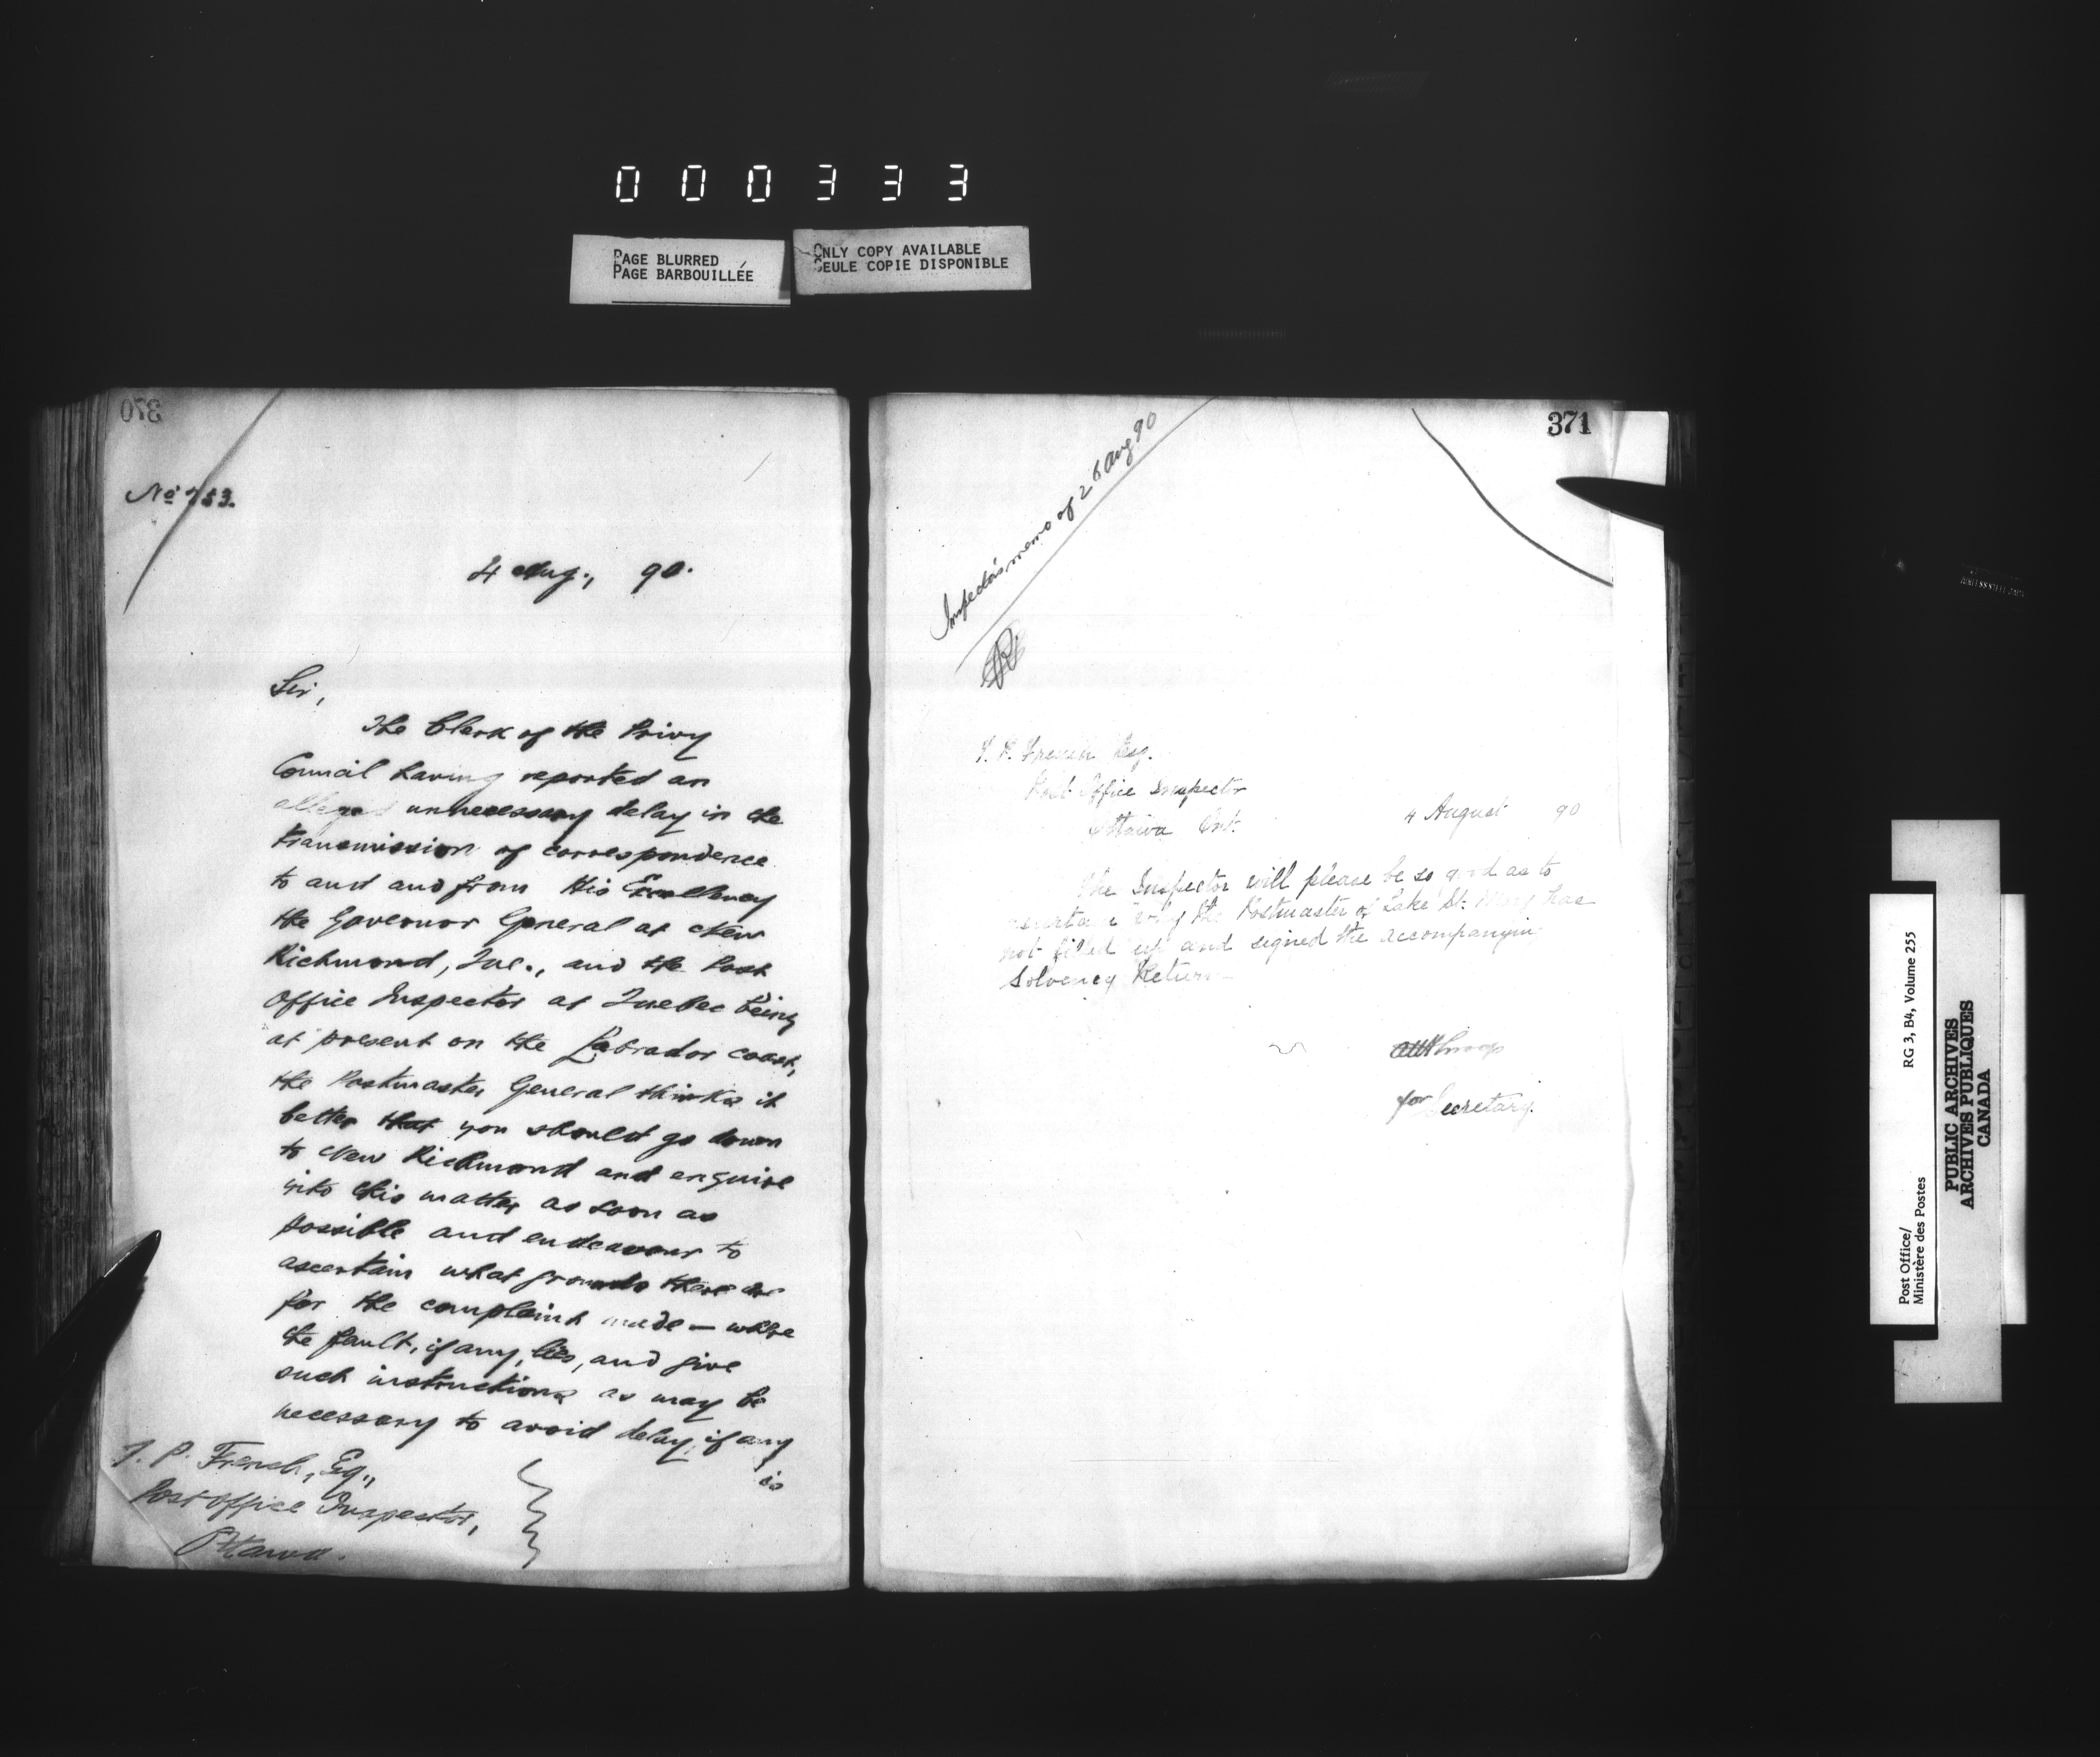 000333
PAGE BLURRED
PAGE BARBOUILLÉE
ONLY COPY AVAILABLE
SEULE COPIE DISPONIBLE
370
No 753.
4 Aug., 90.
Sir,
The Clerk of the Privy
Council having reported an
alleged unnecessary delay in the
transmission of correspondence
to and and from His Excellency
the Governor General at New
Richmond, Que., and the Post
Office Inspector at Quebec being
at present on the Labrador coast,
the Postmaster General thinks it
better that you should go down
to New Richmond and enquire
into this matter as soon as
possible and endeavour to
ascertain what grounds there are
for the complaint made — where
the fault, if any, lies, and give
such instructions as may be
necessary to avoid delay, if any
is
T. P. French, Esq.,
Post Office Inspector,
Ottawa.
371
Inspector's memo of 26 Aug 90
T. P. French Esq.
Post Office Inspector
Ottawa Ont.
4 August 90
The Inspector will please be so good as to
why the Postmaster of Lake St. Mary has
not filled up and signed the accompanying
Solvency Return
for Secretary.
Post Office/
Ministère des Postes
RG 3, B4, Volume 255
PUBLIC ARCHIVES
ARCHIVES PUBLIQUES
CANADA